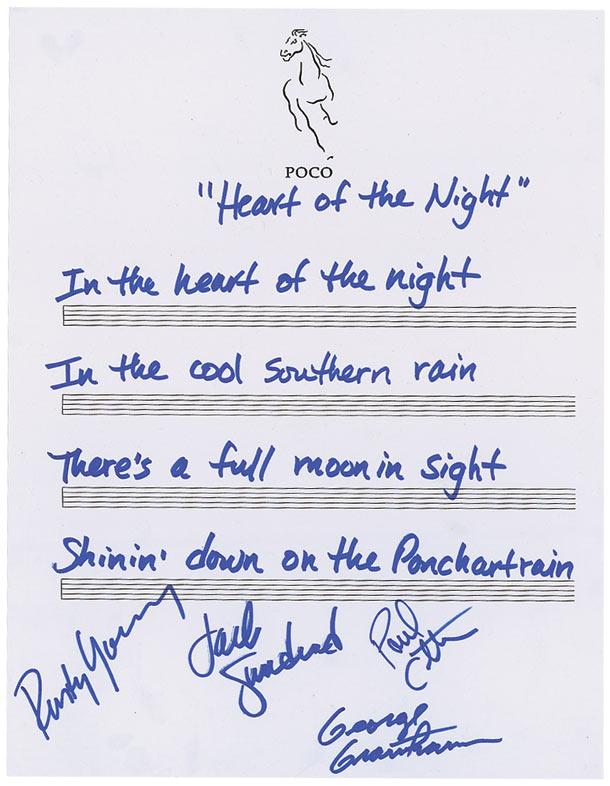 POCO
"Heart of the Night"
In the heart of the night
In the cool Southern rain
There's a full moon in sight
Shinin' down on the Ponchartrain
Rusty Young
Jack Sundrud
Paul Cotton
George Grantham